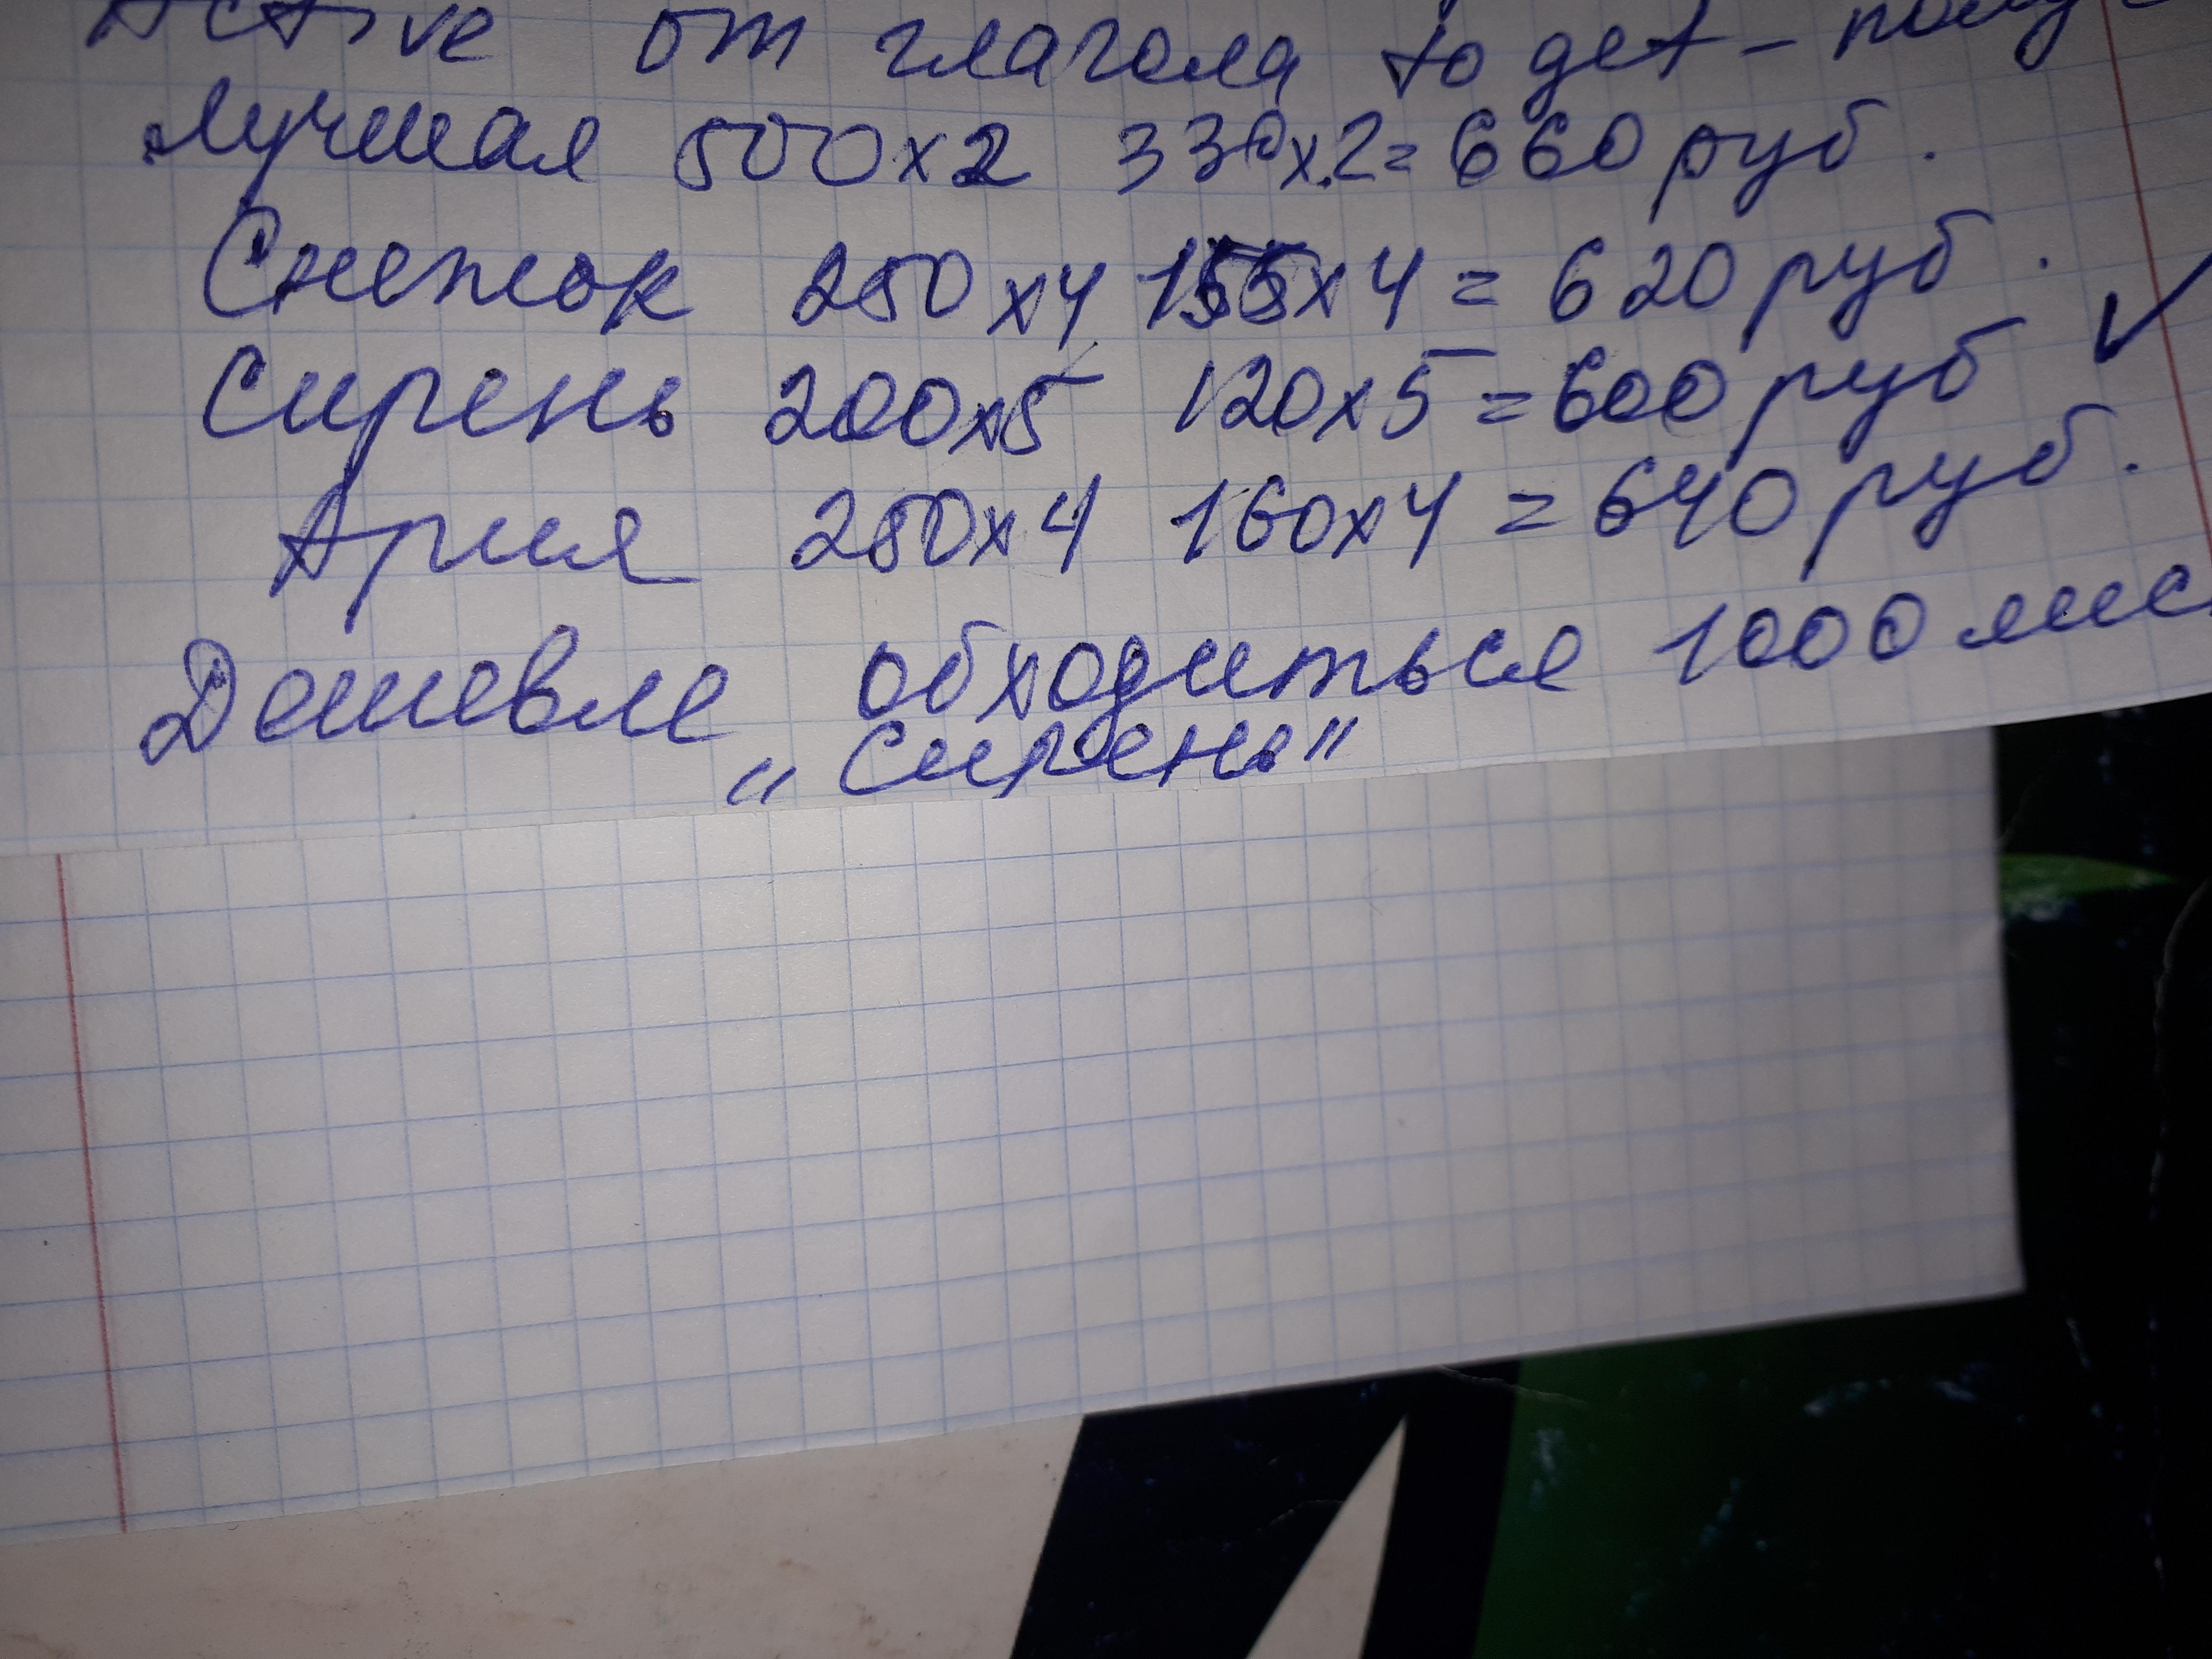 Active от глагола to get -
Лучшая 500x2 330x2=660 руб.
Снежок 250x4 155x4=620 руб.
Сирень 200x5 120x5=600 руб ✓
Ария 250x4 160x4=640 руб.
Дешевле обходиться 1000 лис
„Сирень"